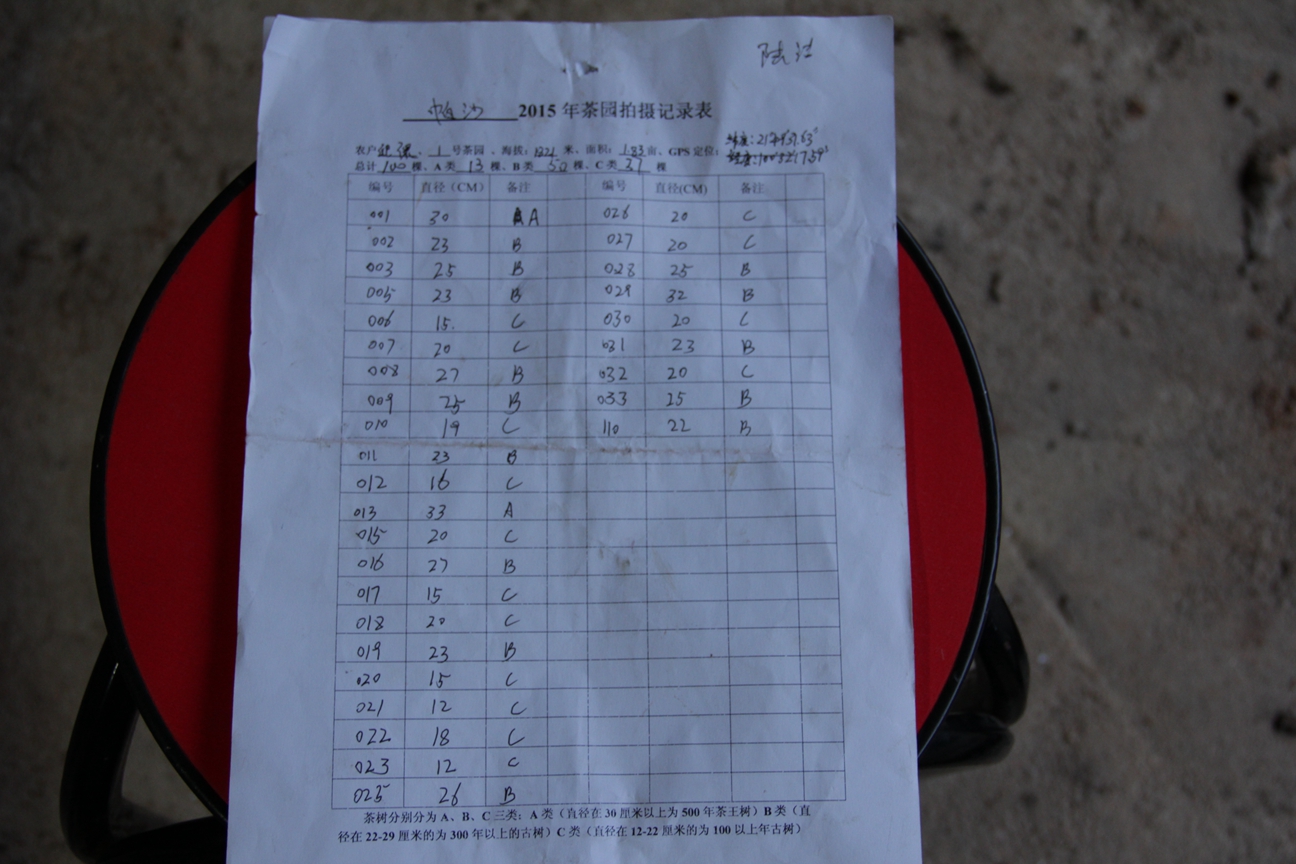 陆
帕沙 2015 年茶园拍摄记录表
农户 、 1 号茶园 、海拔: 米、面积: 1.83 亩、GPS 定位:
总计 100 棵、A 类 13 棵、B 类 50 棵、C 类 37 棵
编号 直径（CM） 备注 编号 直径(CM) 备注
001 30 A 026 20 C
002 23 B 027 20 C
003 25 B 028 25 B
005 23 B 029 32 B
006 15. C 030 20 C
007 20 C 031 23 B
008 27 B 032 20 C
009 25 B 033 25 B
010 19 C 110 22 B
011 23 B
012 16 C
013 33 A
015 20 C
016 27 B
017 15 C
018 20 C
019 23 B
020 15 C
021 12 C
022 18 C
023 12 C
025 26 B
茶树分别分为 A、B、C 三类：A 类（直径在 30 厘米以上为 500 年茶王树）B 类（直
径在 22-29 厘米的为 300 年以上的古树）C 类（直径在 12-22 厘米的为 100 以上年古树）